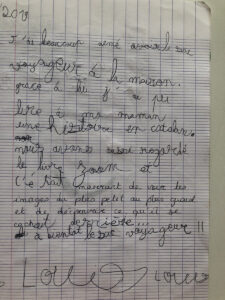 J'ai beaucoup aimé avoir le sac
voyageur à la maison.
grâce à lui j'ai pu
lire à ma maman
une histoire en catalan.
nous avons aussi regardé
le livre zoom et
c'était amusant de voir les
images du plus petit au plus grand
et de découvrir ce qu'il se
cachait derrière...
à bientôt le sac voyageur !!
Lou